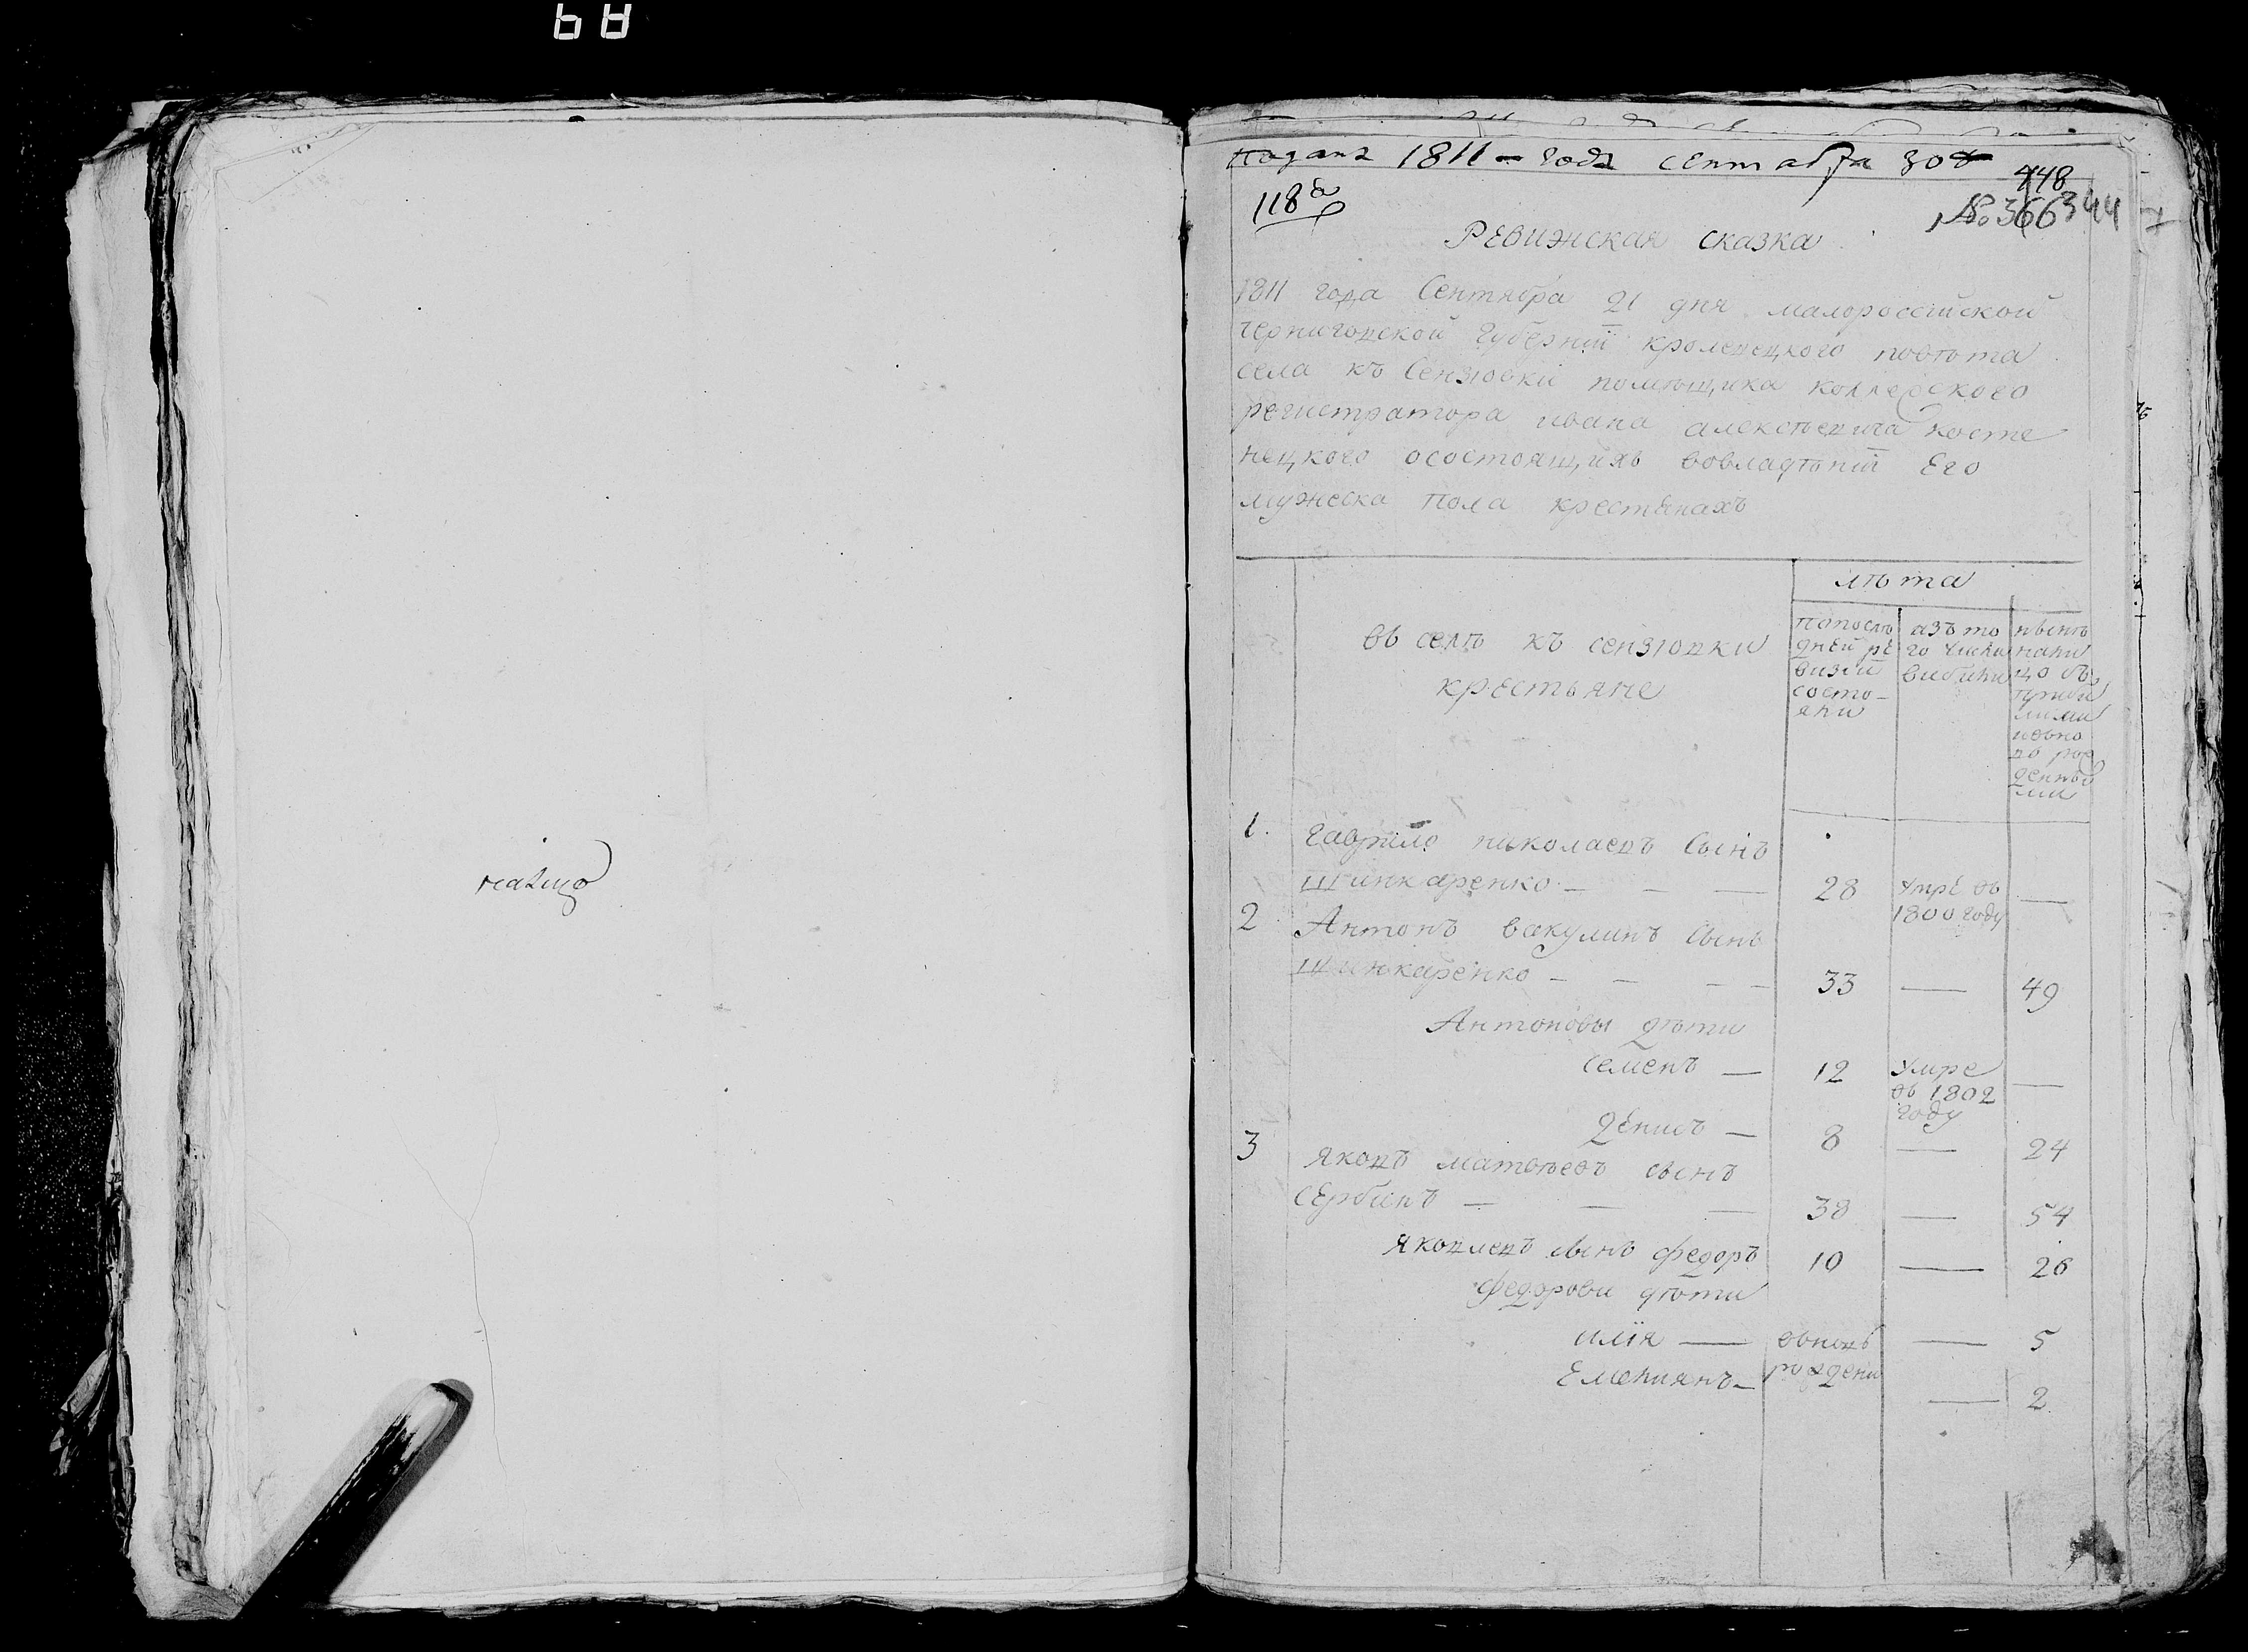 подана 1811 года сентабра 30
118
448
№ 366 344
Ревижская сказка
1811 года Сентября 21 дня малороссійской
черниговской губерніи кролевецкого повѣта
села къ Сензювки помѣщика коллежского
регистратора ивана алексѣевича косте
нецкого осостоящихъ вовладѣніи Его
мужеска пола крестянахъ
лѣта
въ селѣ къ сензювки
крестьяне
попослѣ
дней ре
визіи
состо-
яни
азъ то
го числа
вибили
нынѣ
нали
цо съ
приби
лими
вно
ро
денны
ми
1. гаврило николаевъ Сынъ
Шинкаренко — — — 28 умре въ —
1800 году
2 Антонъ вакулинъ Сынъ
Шинкаренко — — — — 33 — 49
Антоновы дѣти
Семенъ — 12 умре —
въ 1802
году
Денисъ — 8 — 24
3 яковъ матвѣевъ сынъ
Сербинъ — — — 38 — 54
яковлевъ сынъ федоръ 10 — 26
федорови дѣти
илія — вновь — 5
Емелиянъ — рождени — 2